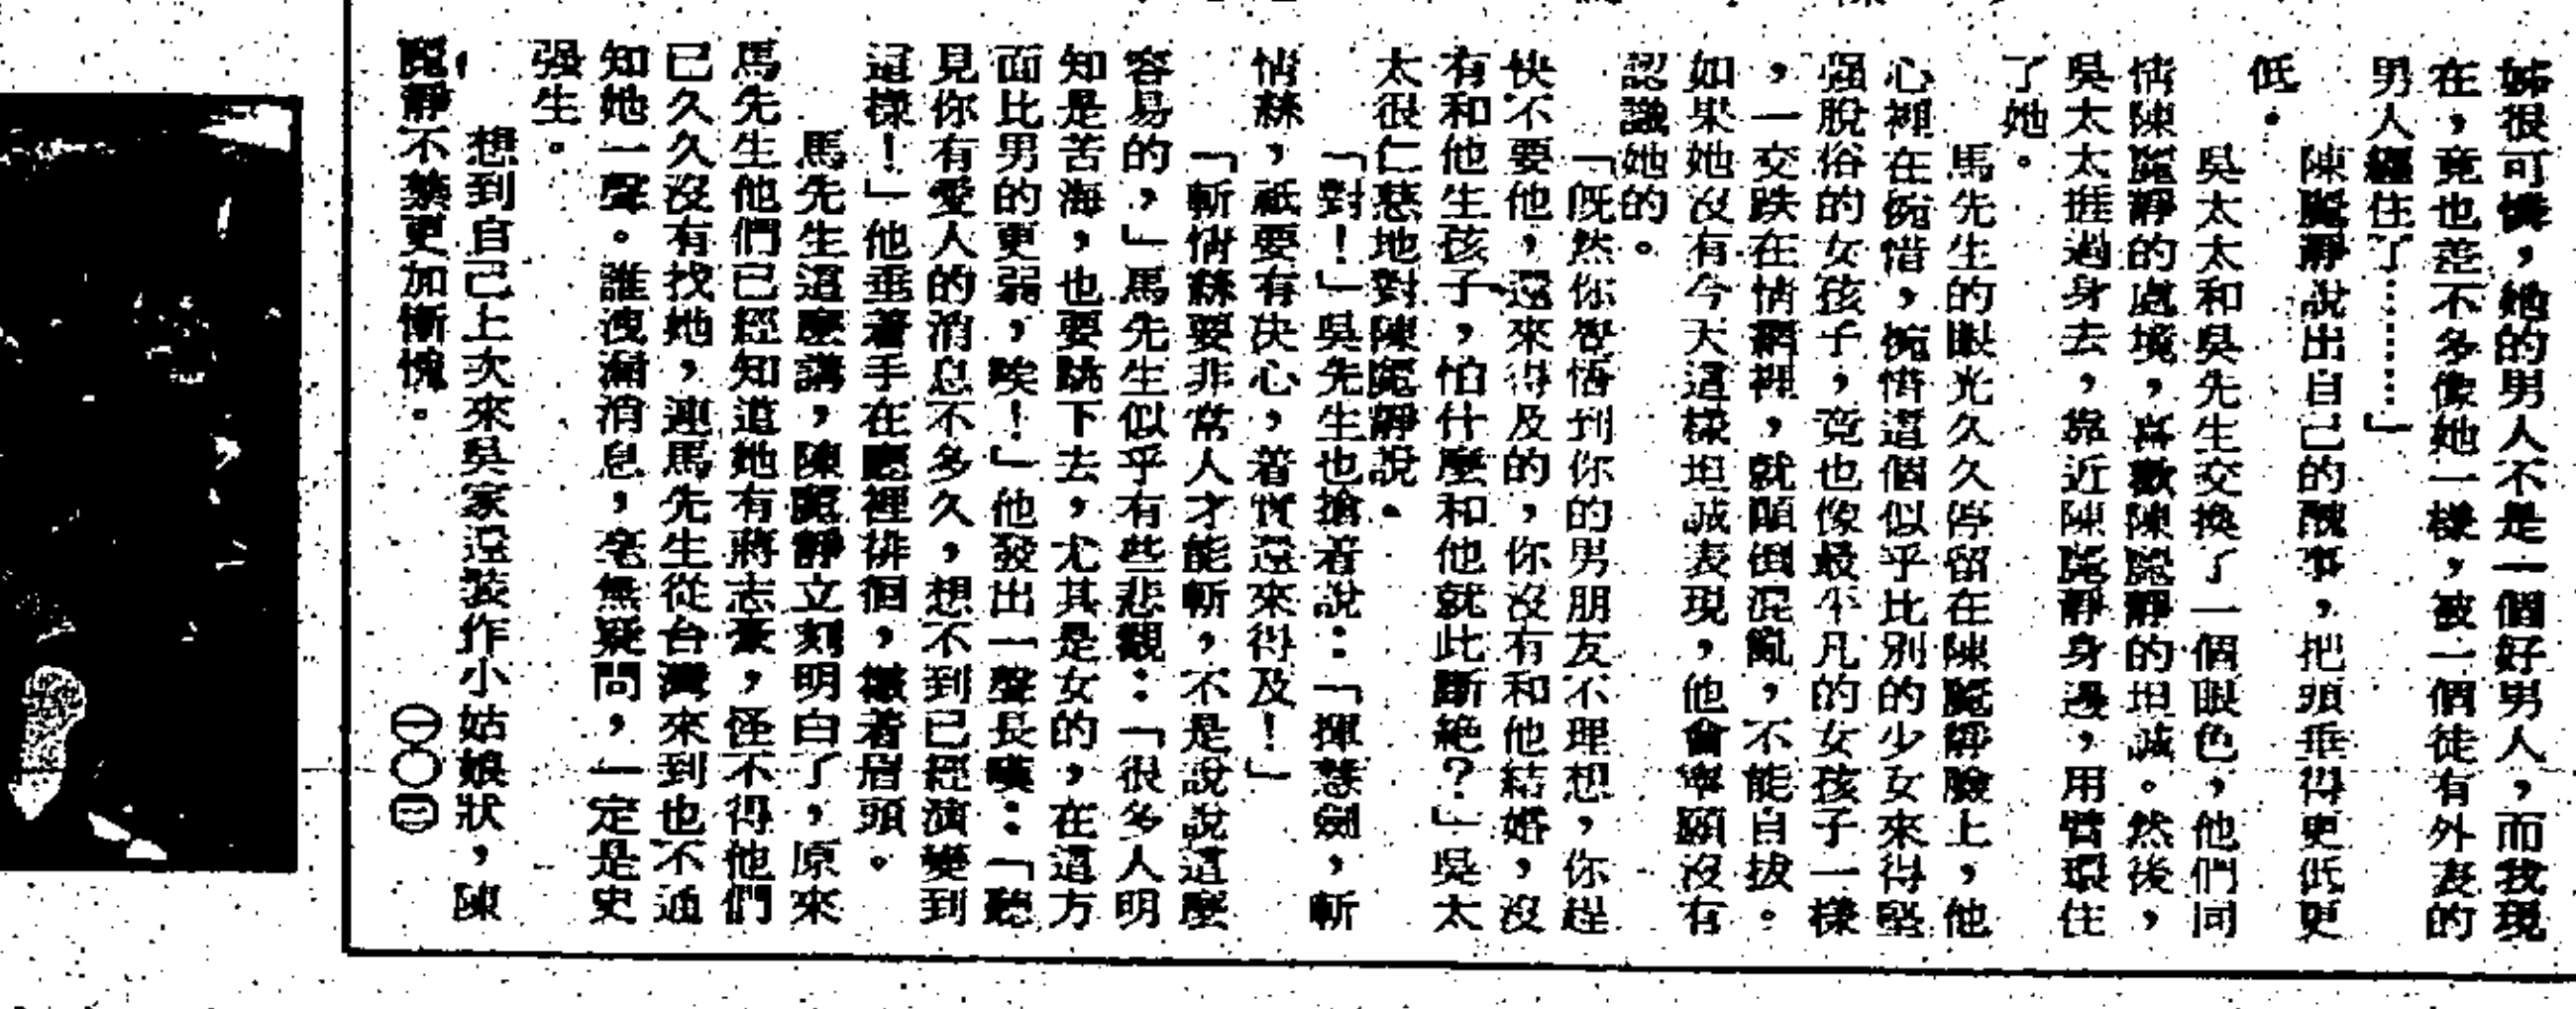 姊很可憐，她的男人不是一個好男人，而我現
在，竟也差不多像她一樣，被一個徒有外表的
男人纒住了………」
陳麗靜說出自己的醜事，把頭垂得更低更
低。
吳太太和吳先生交換了一個眼色，他們同
情陳麗靜的處境，喜歡陳麗靜的坦誠。然後，
吳太太捱過身去，靠近陳麗靜身邊，用臂環住
了她。
馬先生的眼光久久停留在陳麗靜臉上，他
心裡在惋惜，惋惜這個似乎比別的少女來得堅
强脫俗的女孩子，竟也像最平凡的女孩子一樣
，一交跌在情網裡，就顚倒混亂，不能自拔。
如果她沒有今天這樣坦誠表現，他會寧願沒有
認識她的。
「既然你醒悟到你的男朋友不理想，你趕
快不要他，還來得及的，你沒有和他結婚，沒
有和他生孩子，怕什麼和他就此斷絶？」吳太
太很仁慈地對陳麗靜說。
「對！」吳先生也搶着說：「揮慧劍，斬
情絲，祗要有決心，着實還來得及！」
「斬情絲要非常人才能斬，不是說說這麼
容易的，」馬先生似乎有些悲觀：「很多人明
知是苦海，也要跳下去，尤其是女的，在這方
面比男的更弱，唉！」他發出一聲長嘆：「聽
見你有愛人的消息不多久，想不到已經演變到
這樣！」他垂着手在廳裡徘徊，皺着眉頭。
馬先生這麼講，陳麗靜立刻明白了，原來
馬先生他們已經知道她有蔣志豪，怪不得他們
已久久沒有找她，連馬先生從台灣來到也不通
知她一聲。誰洩漏消息，毫無疑問，一定是史
强生。
想到自己上次來吳家還裝作小姑娘狀，陳
麗靜不禁更加慚愧。
㊀〇㊁